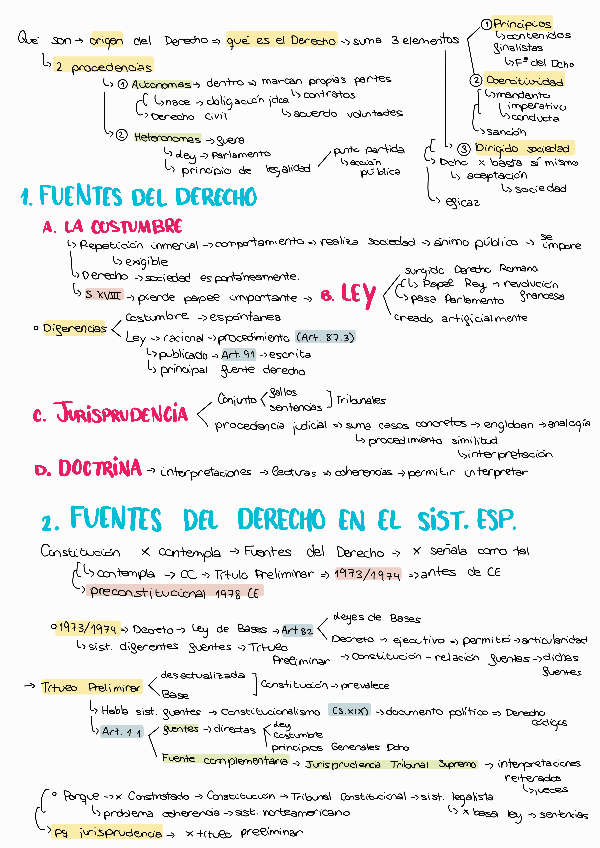 Que son → origen del Derecho → que es el Derecho → suma 3 elementos
① Principios
↳ contenidos
finalistas
↳ Fª del Dcho
② Coercitividad
↳ mandato
imperativo
↳ conducta
↳ sanción
③ Dirigido sociedad
↳ Dcho x basta sí mismo
↳ aceptación
↳ sociedad
↳ eficaz
↳ 2 procedencias
↳ ① Autonomas → dentro → marcan propias partes
↳ contratos
↳ nace → obligación jdca
↳ acuerdo voluntades
↳ Derecho civil
↳ ② Heteronomas → fuera
↳ ley → Parlamento
↳ principio de legalidad
punto partida
↳ acción
pública
1. FUENTES DEL DERECHO
A. LA COSTUMBRE
↳ Repetición inmemorial → comportamiento → realiza sociedad → ánimo público → se impone
↳ exigible
↳ Derecho → sociedad espontáneamente.
↳ S. XVIII → pierde papel importante → B. LEY
surgido Derecho Romano
↳ Papel Rey → revolución
francesa
↳ pasa Parlamento
creado artificialmente
o Diferencias
Costumbre → espontánea
Ley → racional → procedimiento (Art. 87.3)
↳ publicado → Art. 91 → escrita
↳ principal fuente derecho
C. JURISPRUDENCIA
Conjunto
fallos
sentencias
] Tribunales
procedencia judicial → suma casos concretos → engloban → analogía
↳ procedimiento similitud
↳ interpretación
D. DOCTRINA → interpretaciones → lecturas → coherencias → permitir interpretar
2. FUENTES DEL DERECHO EN EL SIST. ESP.
Constitución x contempla → Fuentes del Derecho → x señala como tal
↳ contempla → CC → Título Preliminar → 1973/1974 → antes de CE
↳ preconstitucional 1978 CE
o 1973/1974 → Decreto → Ley de Bases → Art 82
Leyes de Bases
Decreto → ejecutivo → permitió → articularidad
↳ sist. diferentes fuentes → Título
Preliminar → Constitución - relación fuentes → dichas
fuentes
→ Título Preliminar
desactualizada
Base
] Constitución → prevalece
↳ Habla sist. fuentes → Constitucionalismo (S.XIX) → documento político → Derecho
códigos
↳ Art. 1.1
fuentes → directas
ley
costumbre
principios Generales Dcho
Fuente complementaria → Jurisprudencia Tribunal Supremo → interpretaciones
reiteradas
↳ jueces
o Porque → x Constatado → Constitución → Tribunal Constitucional → sist. legalista
↳ problema coherencia → sist. norteamericano
↳ x basa ley → sentencias
↳ Pq jurisprudencia → x título preliminar